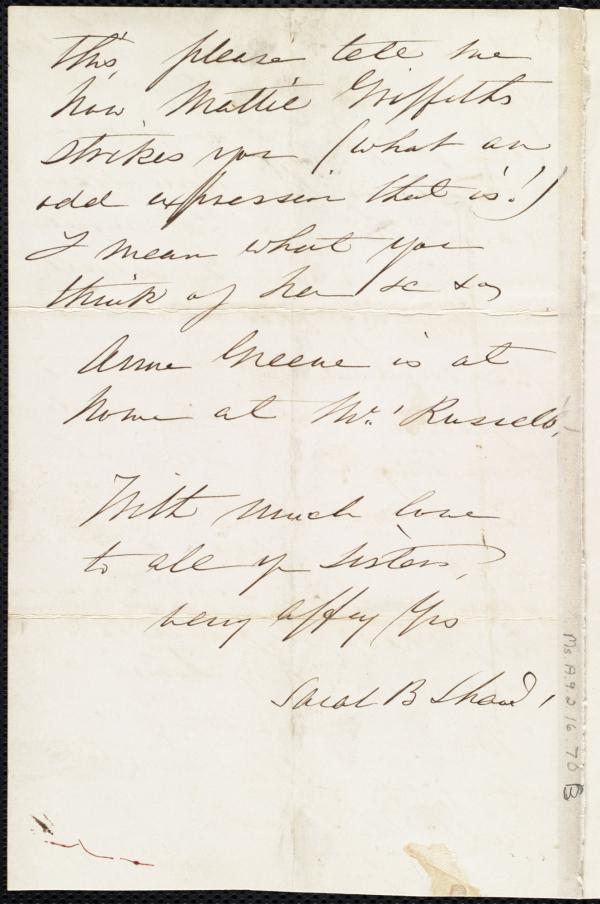 this, please tell me
how Mattie Griffiths
strikes you (what an
odd expression that is!)
I mean what you
think of her &c &c,
Anne Greene is at
home at Mrs' Russells,
With much love
to all yr sisters,
very affly Yrs
Sarah B Shaw,
Ms. A.9.2 16. 70 B